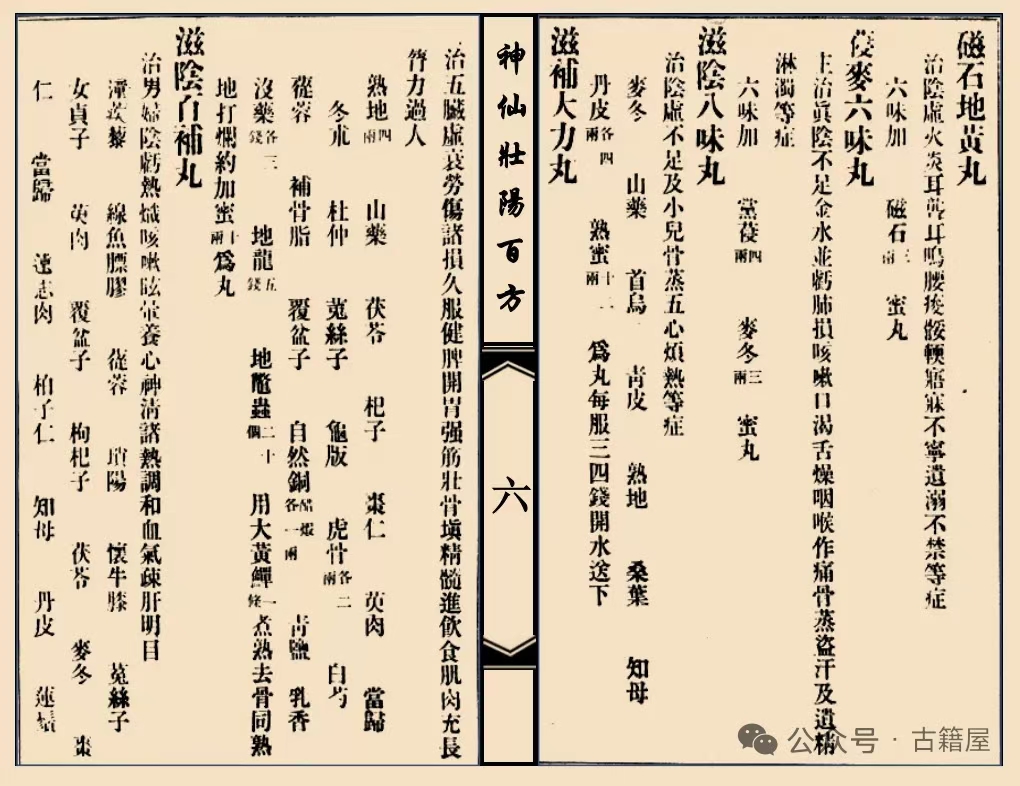 磁石地黃丸
治陰虛火炎耳聾耳鳴腰痠骽輭寤寐不寧遺溺不禁等症
六味加 磁石三兩 蜜丸
葠麥六味丸
主治眞陰不足金水並虧肺損咳嗽口渴舌燥咽喉作痛骨蒸盜汗及遺精
淋濁等症
六味加 黨葠四兩 麥冬三兩 蜜丸
滋陰八味丸
治陰虛不足及小兒骨蒸五心煩熱等症
麥冬 山藥 首烏 青皮 熟地 桑葉 知母
丹皮各四兩 熟蜜十二兩 爲丸每服三四錢開水送下
滋補大力丸
神仙壯陽百方
六
治五臟虛衰勞傷諸損久服健脾開胃强筋壯骨塡精髓進飲食肌肉充長
膂力過人
熟地四兩 山藥 茯苓 杞子 棗仁 萸肉 當歸
冬朮 杜仲 菟絲子 龜版 虎骨各二兩 白芍
蓯蓉 補骨脂 覆盆子 自然銅醋煅各一兩 青鹽 乳香
沒藥各三錢 地龍五錢 地鼈蟲二十個 用大黃鱓一條煮熟去骨同熟
地打爛約加蜜十兩爲丸
滋陰百補丸
治男婦陰虧熱熾咳嗽眩暈養心神淸諸熱調和血氣疎肝明目
潼蒺藜 線魚膘膠 蓯蓉 瑣陽 懷牛膝 菟絲子
女貞子 萸肉 覆盆子 枸杞子 茯苓 麥冬 棗
仁 當歸 遠志肉 柏子仁 知母 丹皮 蓮鬚
公众号·古籍屋